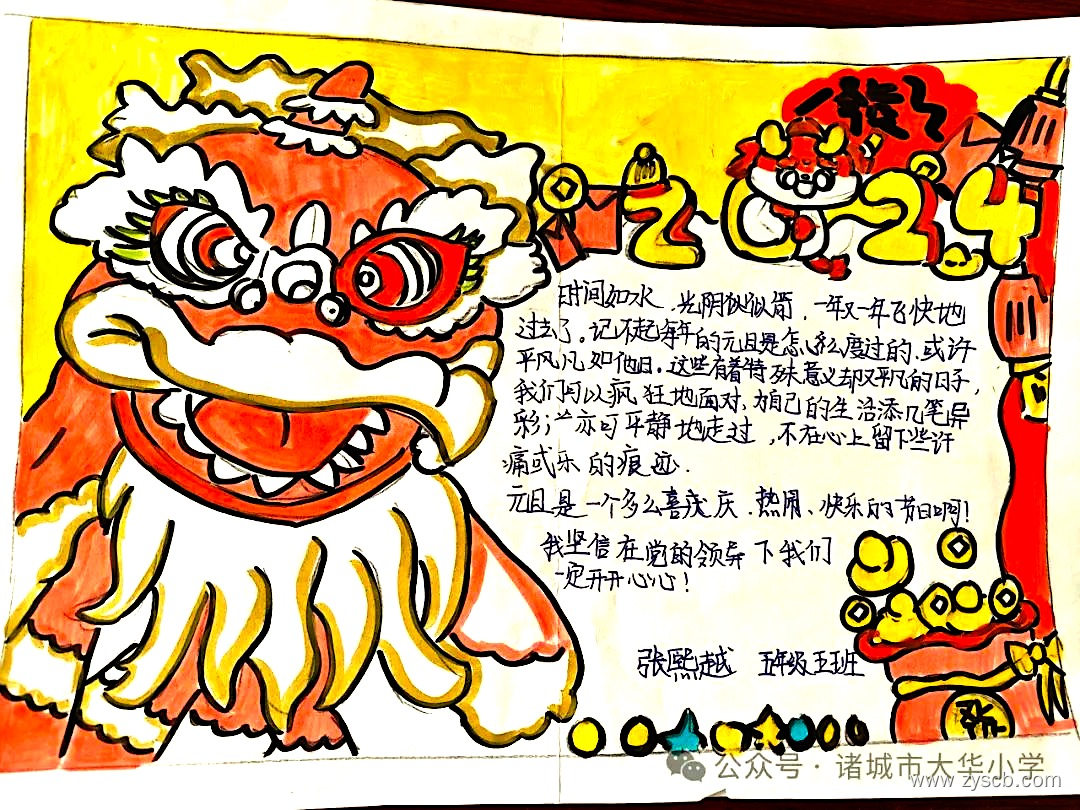 發了
2024
时间如水,光阴似似箭,一年又一年飞快地
过去了。记不起每年的元旦是怎么度过的,或许
平凡凡如他日。这些有着特殊意义却又平凡的日子,
我们可以疯狂地面对,为自己的生活添几笔异
彩;亦可平静地走过,不在心上留下些许
痛或乐的痕迹.
元旦是一个多么喜庆、热闹、快乐的节日啊!
我坚信在党的领导下我们
一定开开心心!
张熙越 五年级五班
公众号·诸城市大华小学
www.zyscb.com